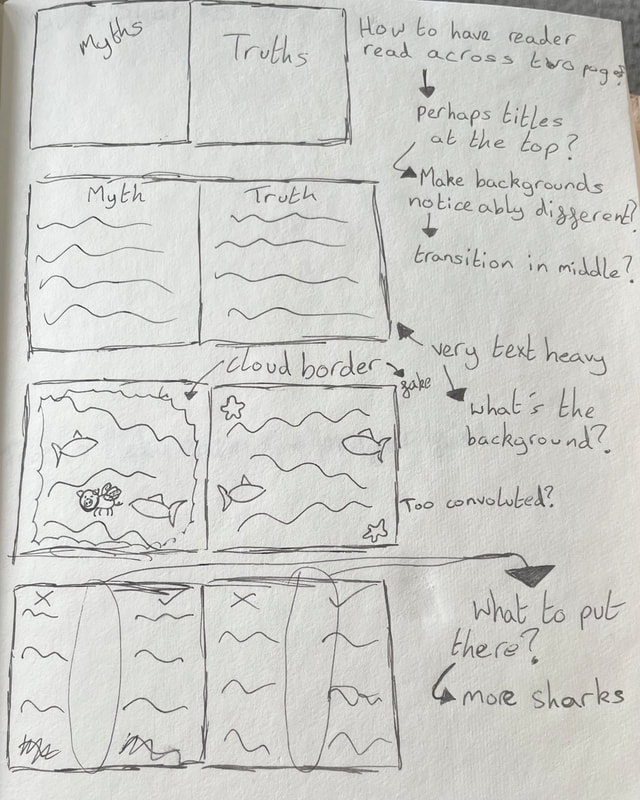 Myths
Truths
How to have reader
read across two pages?
perhaps titles
at the top?
Make backgrounds
noticeably different?
transition in middle?
Myth
Truth
very text heavy
what's the
background?
cloud border
Too convoluted?
What to put
there?
more sharks